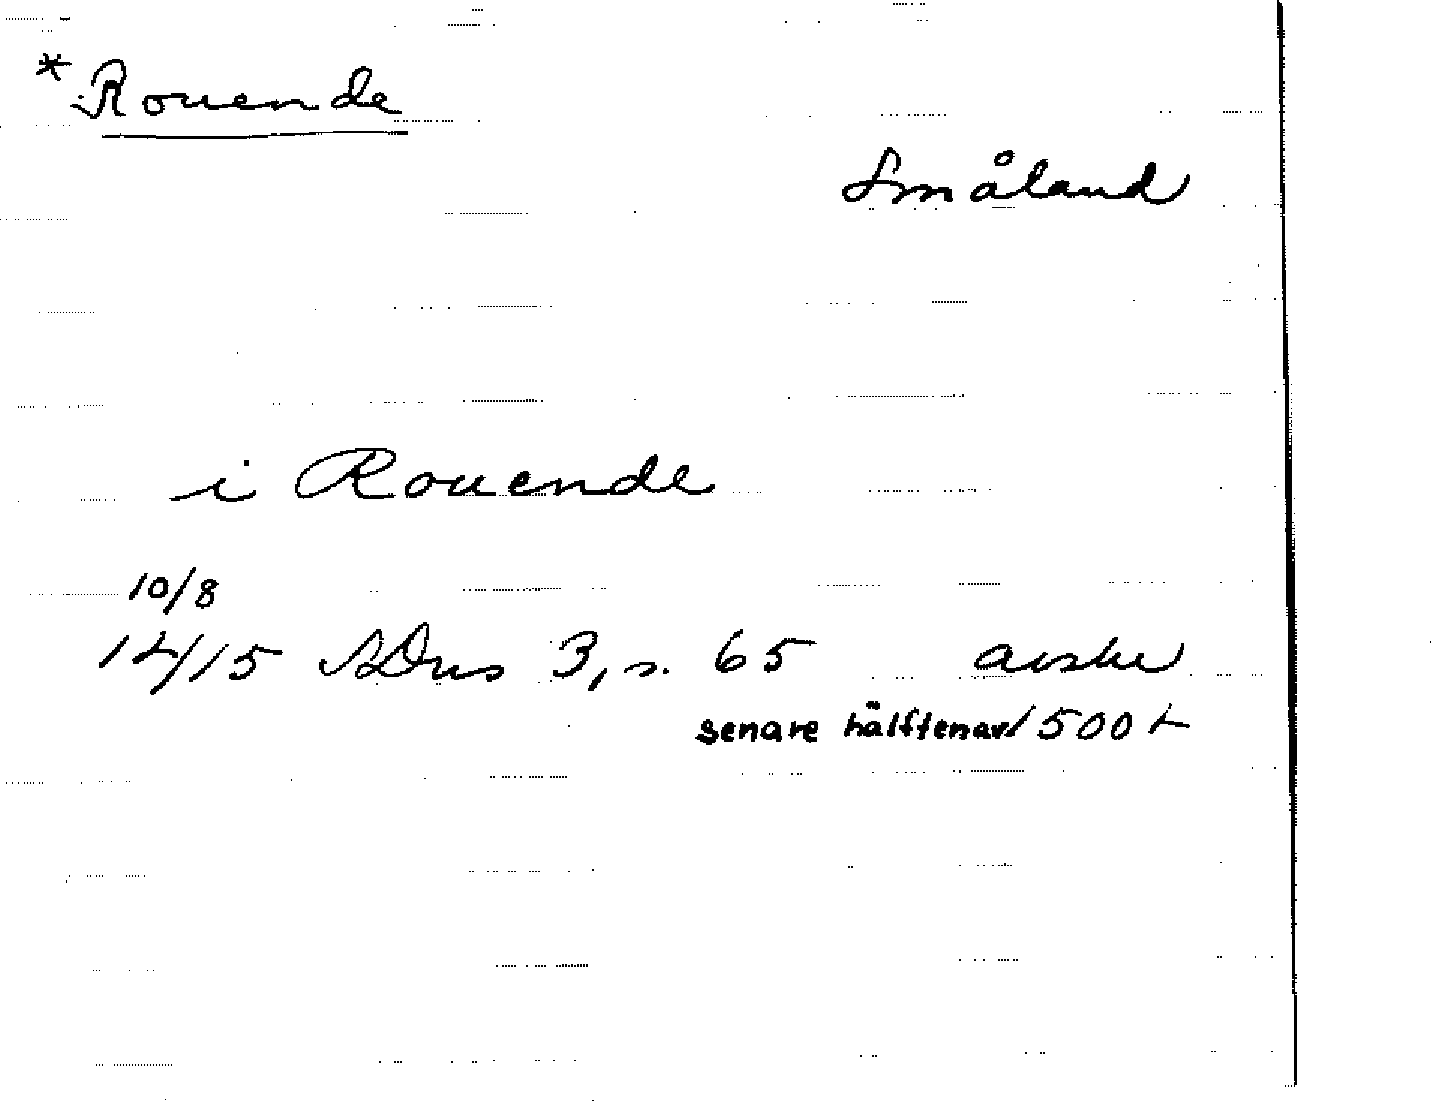 * Rouende
Småland
i Rouende
10/8
1415 SDns 3, s. 65 avskr
senare hälften av 1500 t